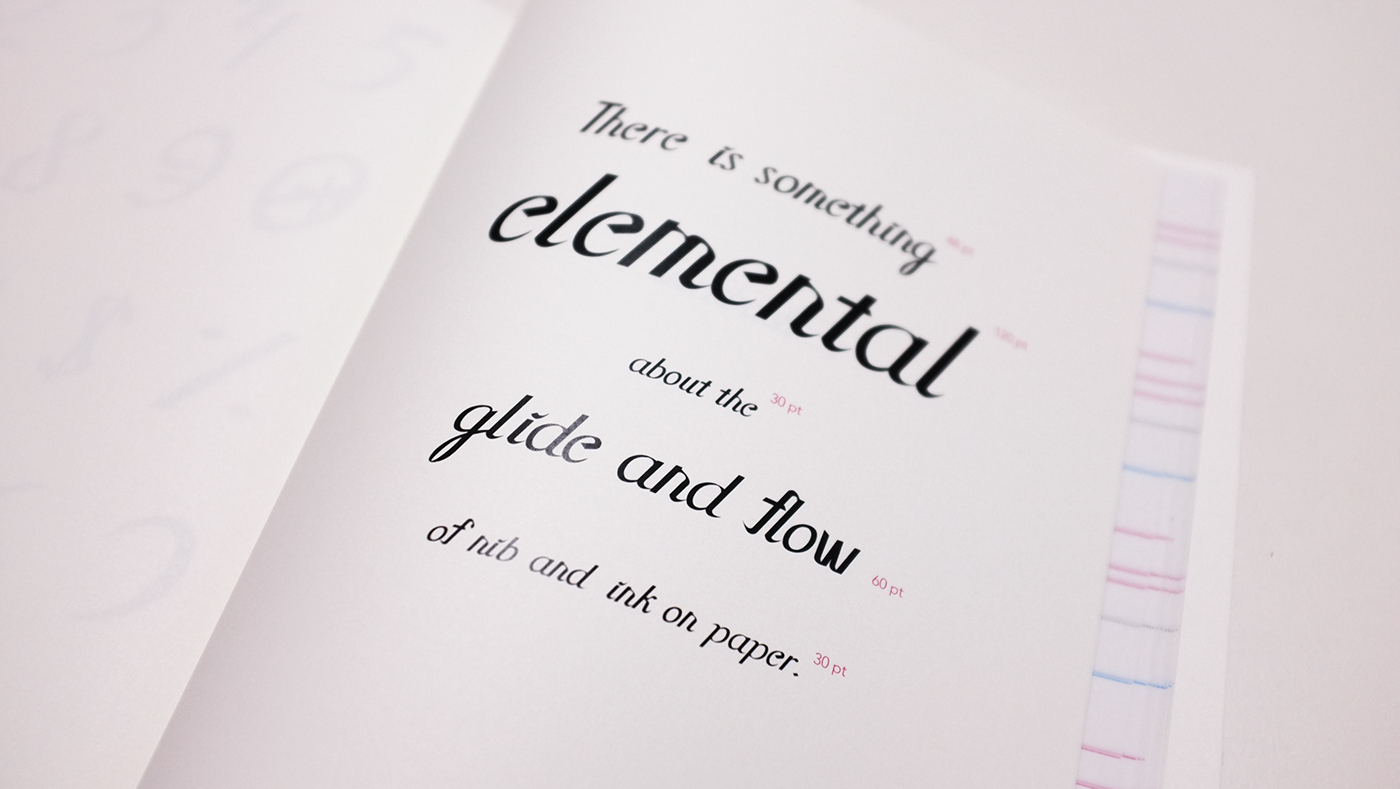 There is something
elemental 120 pt
about the 30 pt
glide and flow 60 pt
of nib and ink on paper. 30 pt